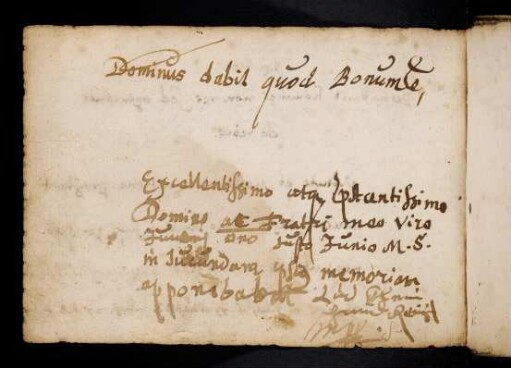 Dominus dabit quod Bonum e,
Excellentissimo atq præstantissimo
Domino ac Fratri meo Viro
Juveni dno Justo Junio M. S.
in Jucundam memoriam
apponebabat